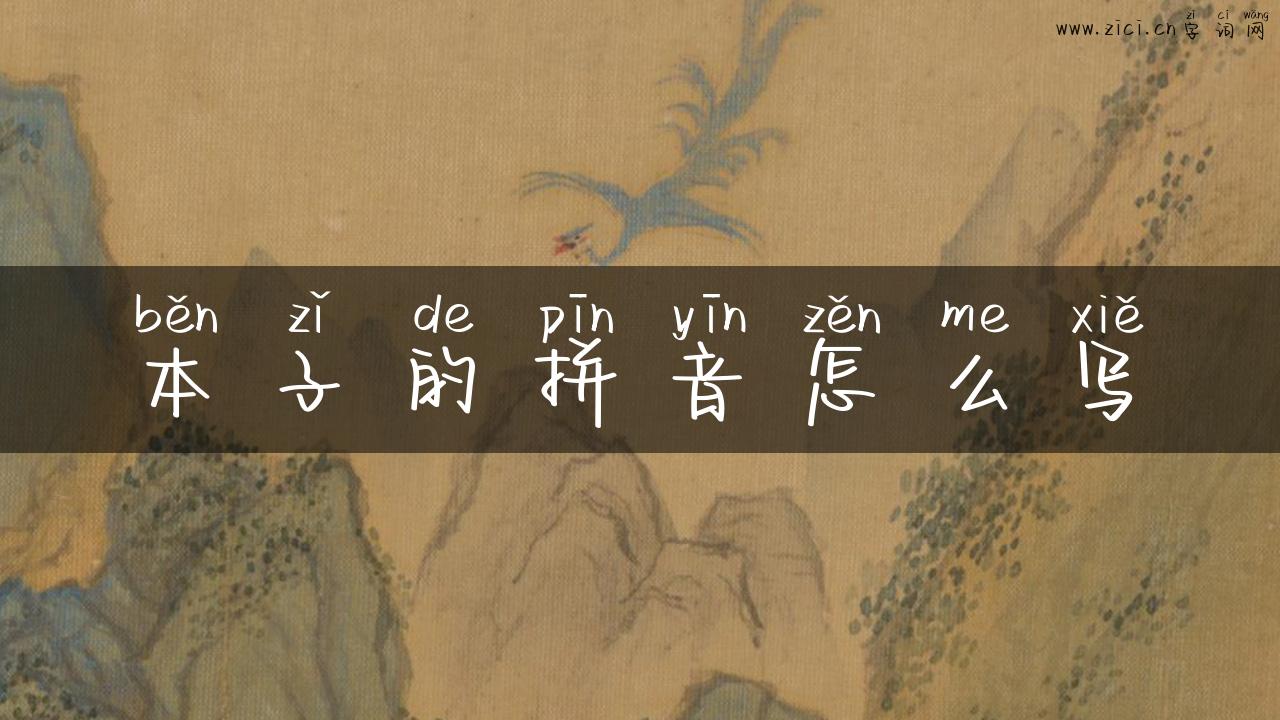 zì cí wǎng
www.zici.cn 字词网
běn zǐ de pīn yīn zěn me xiě
本子的拼音怎么写